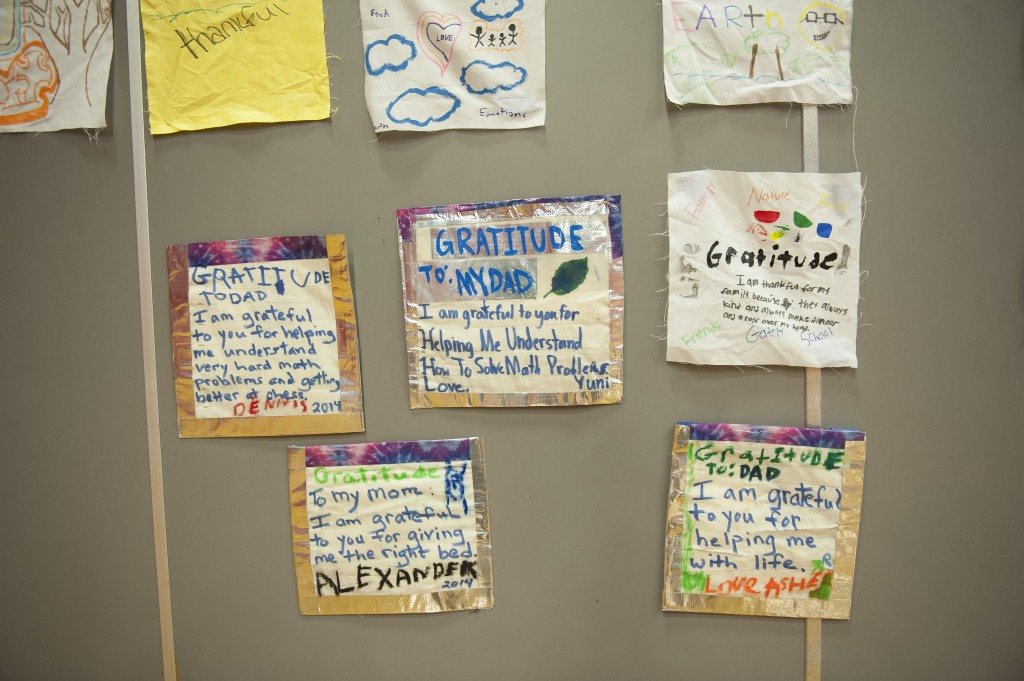 thankful
Food
LOVE
Emotions
EARth
GRATITUDE
TO DAD
I am grateful
to you for helping
me understand
very hard math
problems and getting
better at chess.
DENNIS 2014
GRATITUDE
TO: MY DAD
I am grateful to you for
Helping Me Understand
How To Solve Math Problems
Love. Yuni
Family
Nature
Gratitude
I am thankful for my
family because they always
kind and always make dinner
and a roof over my head.
Friends
School
Gratitude
To my mom:
I am grateful
to you for giving
me the right bed.
ALEXANDER
2014
GratITUDE
TO: DAD
I am grateful
to you for
helping me
with life.
LOVE ASHER